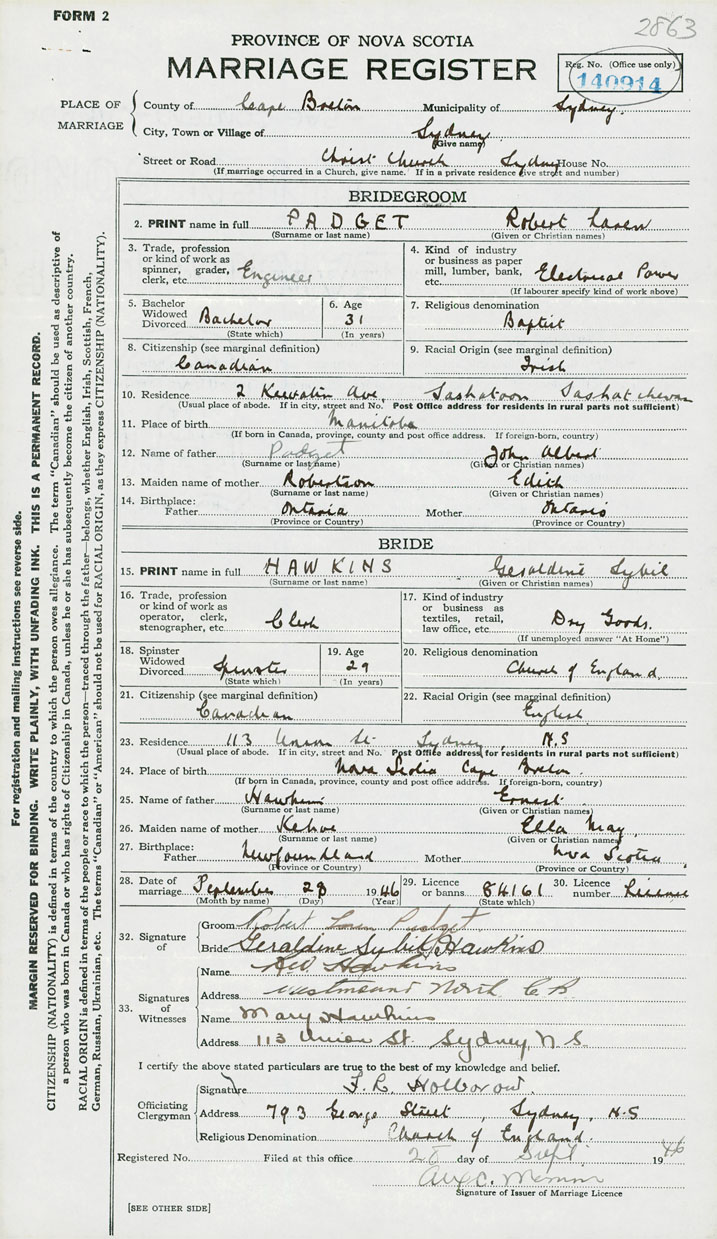 FORM 2
2863
PROVINCE OF NOVA SCOTIA
MARRIAGE REGISTER
Reg. No. (Office use only)
140914
PLACE OF MARRIAGE
County of Cape Breton Municipality of Sydney.
City, Town or Village of Sydney
(Give name)
Street or Road Christ Church Sydney House No.
(If marriage occurred in a Church, give name. If in a private residence give street and number)
BRIDEGROOM
2. PRINT name in full PADGET Robert
(Surname or last name) (Given or Christian names)
3. Trade, profession or kind of work as spinner, grader, clerk, etc. Engineer
4. Kind of industry or business as paper mill, lumber, bank, etc. Electrical Power
(If labourer specify kind of work above)
5. Bachelor Widowed Divorced Bachelor
(State which)
6. Age 31
(In years)
7. Religious denomination Baptist
8. Citizenship (see marginal definition) Canadian
9. Racial Origin (see marginal definition) Irish
10. Residence 2 Ave, Saskatoon Saskatchewan
(Usual place of abode. If in city, street and No. Post Office address for residents in rural parts not sufficient)
11. Place of birth Manitoba
(If born in Canada, province, county and post office address. If foreign-born, country)
12. Name of father Padget John Albert
(Surname or last name) (Given or Christian names)
13. Maiden name of mother Robertson Edith
(Surname or last name) (Given or Christian names)
14. Birthplace:
Father Ontario Mother Ontario
(Province or Country) (Province or Country)
BRIDE
15. PRINT name in full HAWKINS Geraldine Sybil
(Surname or last name) (Given or Christian names)
16. Trade, profession or kind of work as operator, clerk, stenographer, etc. Clerk
17. Kind of industry or business as textiles, retail, law office, etc. Dry Goods.
(If unemployed answer "At Home")
18. Spinster Widowed Divorced Spinster
(State which)
19. Age 29
(In years)
20. Religious denomination Church of England.
21. Citizenship (see marginal definition) Canadian
22. Racial Origin (see marginal definition) English
23. Residence 113 Union St. Sydney, N.S
(Usual place of abode. If in city, street and No. Post Office address for residents in rural parts not sufficient)
24. Place of birth Nova Scotia Cape Breton
(If born in Canada, province, county and post office address. If foreign-born, country)
25. Name of father Hawkins Ernest
(Surname or last name) (Given or Christian names)
26. Maiden name of mother Kehoe Ella May
(Surname or last name) (Given or Christian names)
27. Birthplace:
Father Newfoundland Mother Nova Scotia
(Province or Country) (Province or Country)
28. Date of marriage September 28 1946
(Month by name) (Day) (Year)
29. Licence or banns 84161
(State which)
30. Licence number Licence
32. Signature of
Groom Robert Padget
Bride Geraldine Sybil Hawkins
33. Signatures of Witnesses
Name Hawkins
Address Westmount North C B
Name Mary Hawkins
Address 113 Union St. Sydney, N S.
I certify the above stated particulars are true to the best of my knowledge and belief.
Officiating Clergyman
Signature F. L. Holborow.
Address 793 George Street, Sydney, N.S
Religious Denomination Church of England.
Registered No. Filed at this office 28 day of Sept 1946
Signature of Issuer of Marriage Licence
[SEE OTHER SIDE]
For registration and mailing instructions see reverse side.
MARGIN RESERVED FOR BINDING. WRITE PLAINLY, WITH UNFADING INK. THIS IS A PERMANENT RECORD.
CITIZENSHIP (NATIONALITY) is defined in terms of the country to which the person owes allegiance. The term "Canadian" should be used as descriptive of
a person who was born in Canada or who has rights of Citizenship in Canada, unless he or she has subsequently become the citizen of another country.
RACIAL ORIGIN is defined in terms of the people or race to which the person—traced through the father—belongs, whether English, Irish, Scottish, French,
German, Russian, Ukrainian, etc. The terms "Canadian" or "American" should not be used for RACIAL ORIGIN, as they express CITIZENSHIP (NATIONALITY).